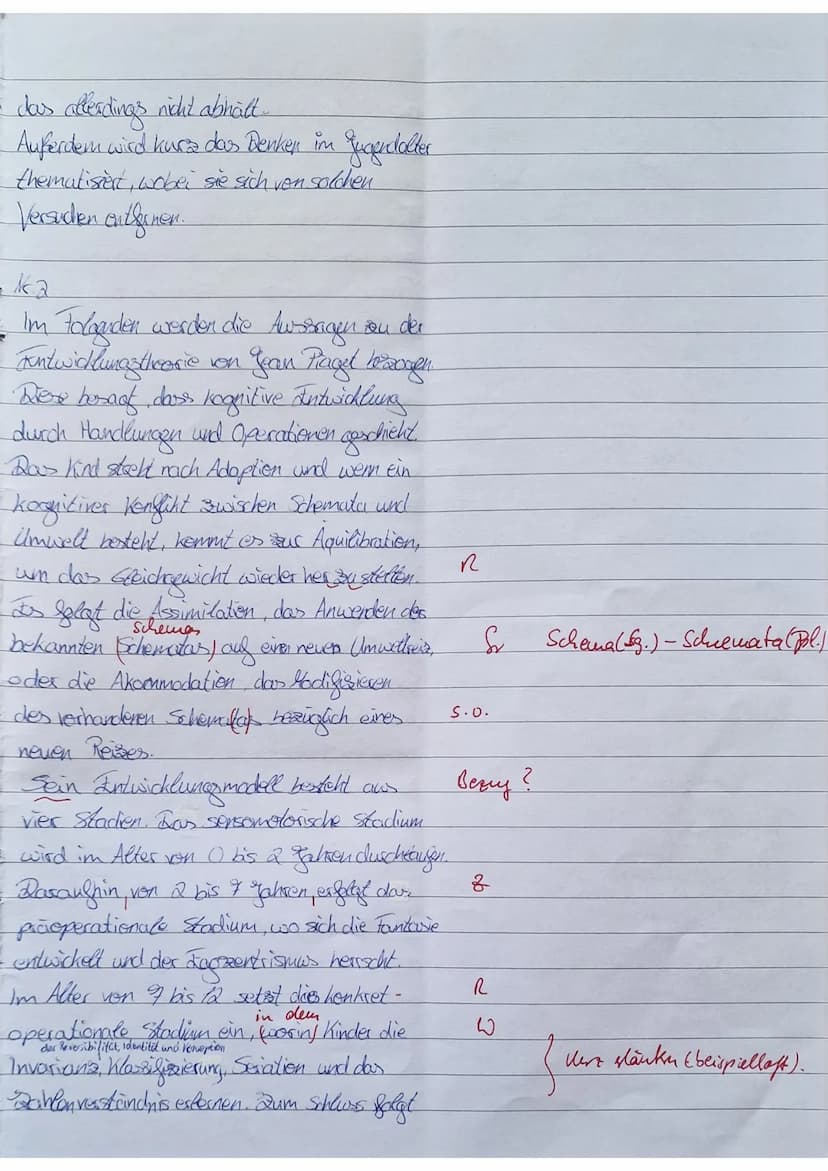 das allerdings nicht abhält.
Außerdem wird kurz das Denken im Jugendalter
thematisiert, wobei sie sich von solchen
Versuchen entfernen.
Nr 2
Im Folgenden werden die Aussagen zu der
Entwicklungstheorie von Jean Piaget bezogen.
Diese besagt, dass kognitive Entwicklung
durch Handlungen und Operationen geschieht.
Das Kind strebt nach Adaption und wenn ein
kognitiver Konflikt zwischen Schemata und
Umwelt besteht, kommt es zur Äquilibration,
um das Gleichgewicht wieder her zu stellen. R
Es folgt die Assimilation, das Anwenden des
schemas
bekannten (Schematas) auf einen neuen Umweltreiz, Gr Schema (Sg.) – Schemata (Pl.)
oder die Akommodation, das Modifizieren
des vorhandenen Schema(ta)s bezüglich eines s.o.
neuen Reizes.
Sein Entwicklungsmodell besteht aus Bezug?
vier Stadien. Das sensomotorische Stadium
wird im Alter von 0 bis 2 Jahren durchlaufen.
Daraufhin, von 2 bis 7 Jahren, erfolgt das Z
präoperationale Stadium, wo sich die Fantasie
entwickelt und der Egozentrismus herrscht.
Im Alter von 7 bis 12 setzt dies konkret- R
in dem
operationale Stadium ein, (worin) Kinder die W
der Reversibilität, Identität und
Invarianz, Klassifizierung, Seriation und das (beispielhaft).
Zahlenverständnis erlernen. Zum Schluss folgt